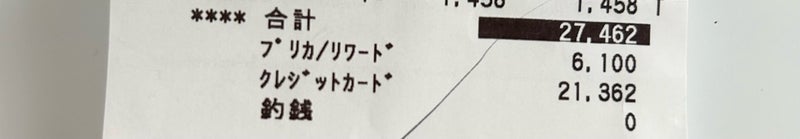 1,458 T
**** 合計 27,462
ﾌﾟﾘｶ/ﾘﾜｰﾄﾞ 6,100
ｸﾚｼﾞｯﾄｶｰﾄﾞ 21,362
釣銭 0